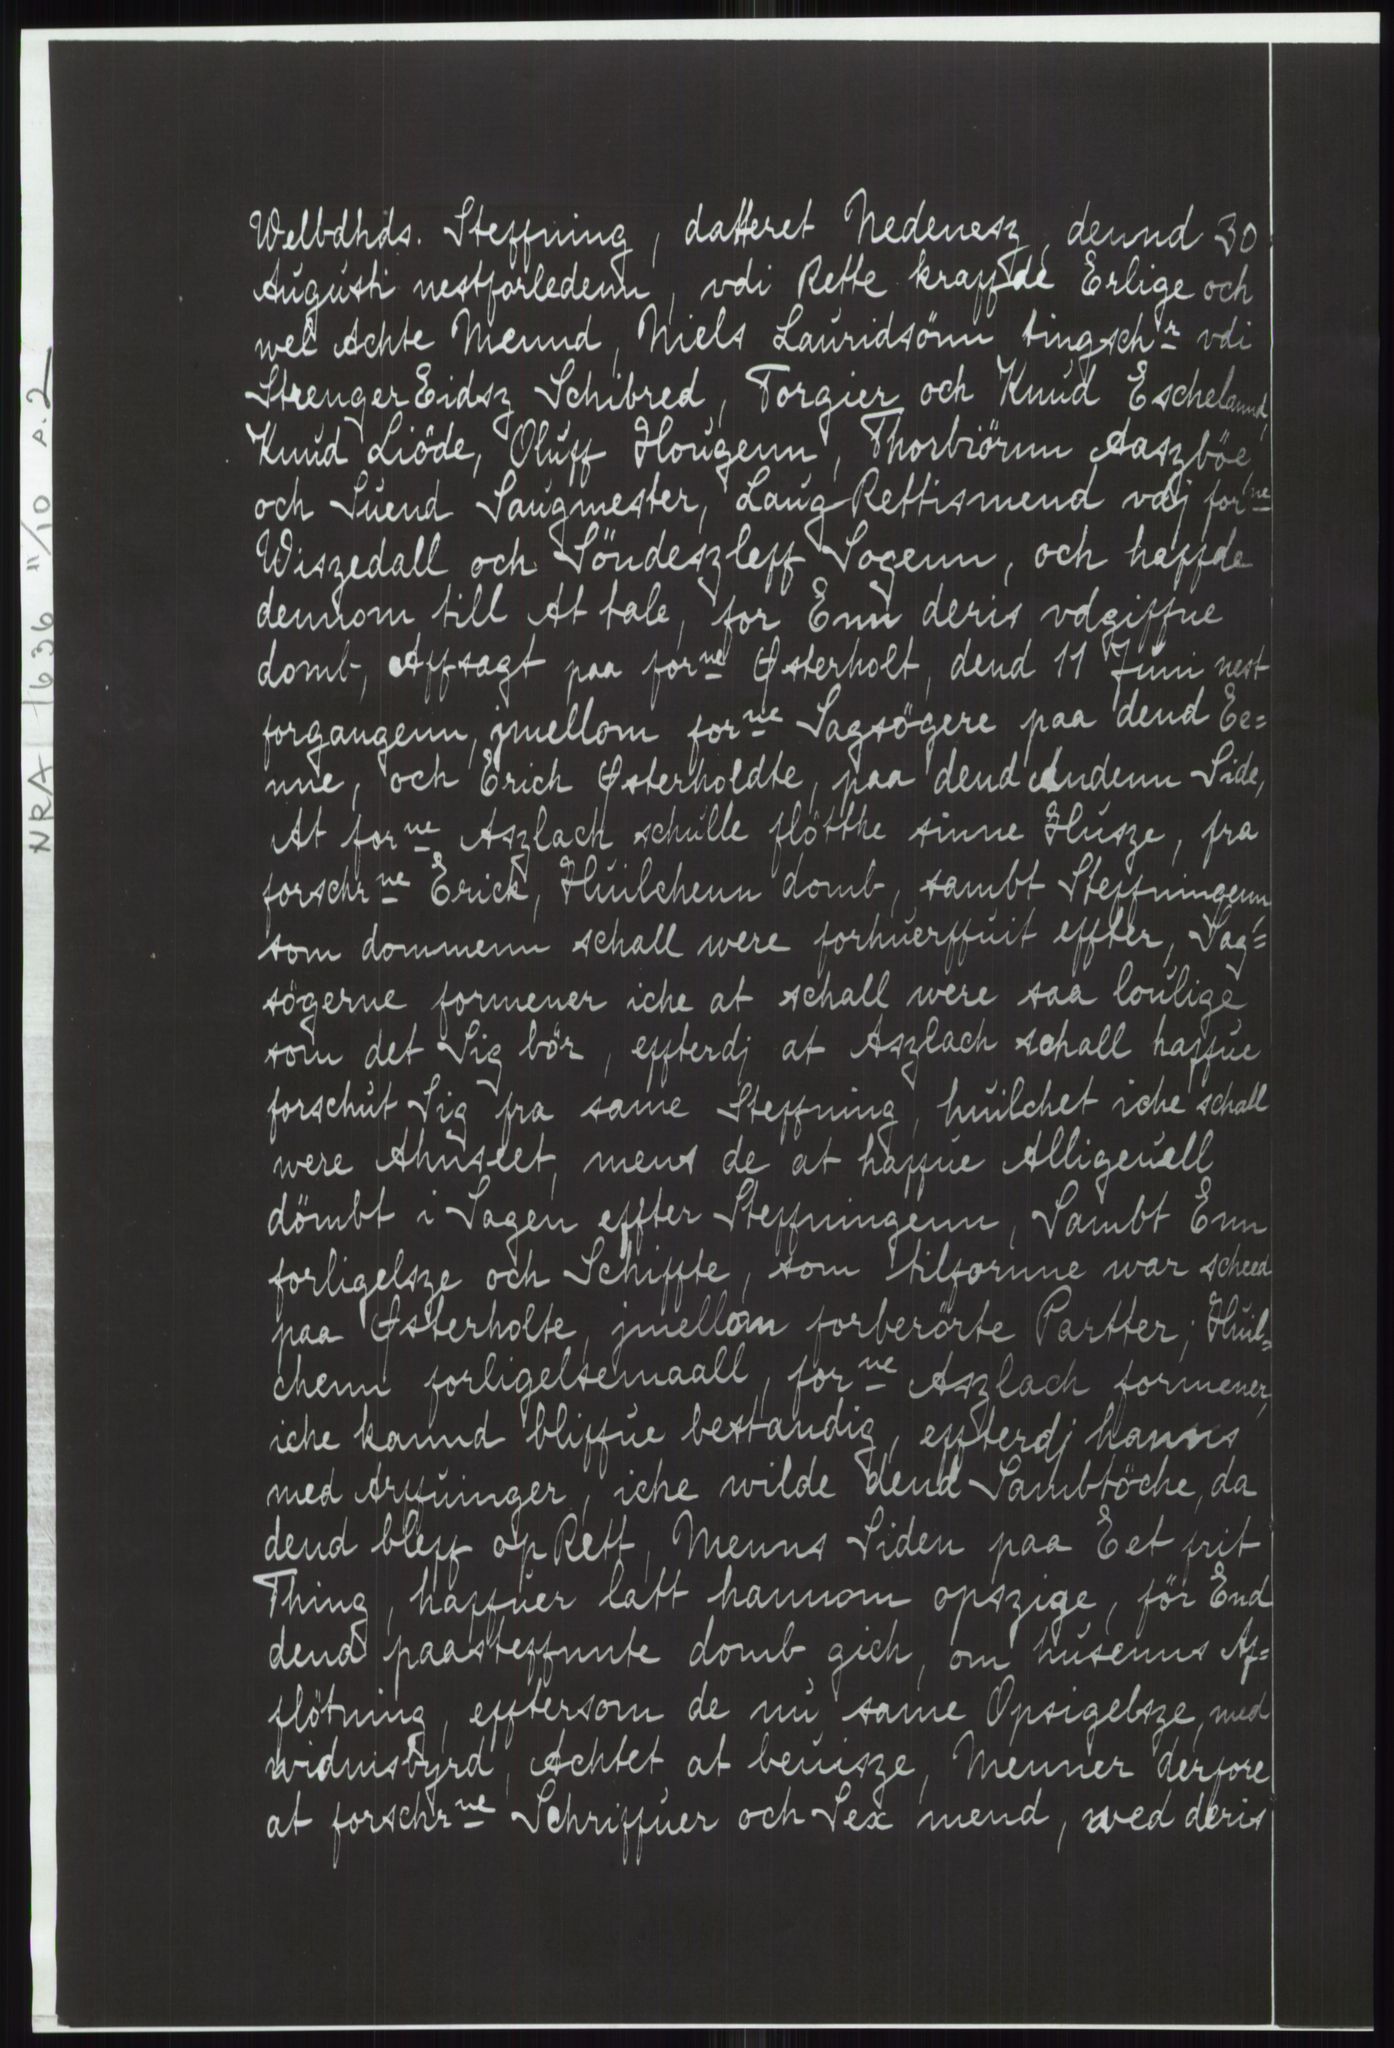 Welbdhds. Steffning, datteret Nedenesz, dennd 30
Augusti nestforledenn, vdi Rette kraffde Erlige och
wel Achte Mennd, Niels Lauridsönn tingschr vdi
Strenger Eidsz Schibred, Torgier och Knud Eschelannd,
Knud Liöde, Oluff Hougenn, Thorbiörnn Aaszböe
och Suend Saugmester, Laug Rettismend vdj forne
Wiszedall och Söndeszleff Sogenn, och haffde
dennom till At tale, for Enn deris vdgiffne
domb, Affsagt paa forne Østerholt, dend 11 Juni nest
forgangenn, jmellom forne Sagsögere paa dend Ee=
nne, och Erich Østerholdte, paa dend Andenn Side,
At forne Aszlach schulle flötthe sinne Husze, fra
forschrne Erick, Huilchenn domb, sambt Steffningenn,
som dommenn schall were forhuerffuit effter, Sag=
sögerne formener iche at schall were saa loulige
som det Sig bör, effterdj at Aszlach schall haffue
forschut Sig fra same Steffning, huilchet iche schall
were Ahnslet, mens de at haffue Alligeuell
dömbt i Sagen effter Steffningenn, Sambt Enn
forligelsze och Schiffte, som tilfornne war scheed
paa Østerholte, jmellom forberörte Partter, Huil=
chenn forligelsemaall, forne Aszlach formener,
iche kannd bliffue bestandig, effterdj hanns
med Arffuinger, iche wilde dend Sambtöche, da
dend bleff op Rett, Menns Siden paa Eet frit
Thing, haffuer latt hannom opszige, för End
dend paasteffnnte domb gich, om husenns Af=
flötning, efftersom de nu same Opsigelsze, med
widnisbyrd, Achtet at beuisze, Menner derfore
at forschrne Schriffuer och Sex mend, wed deris
NRA 1636 11/10 p. 2